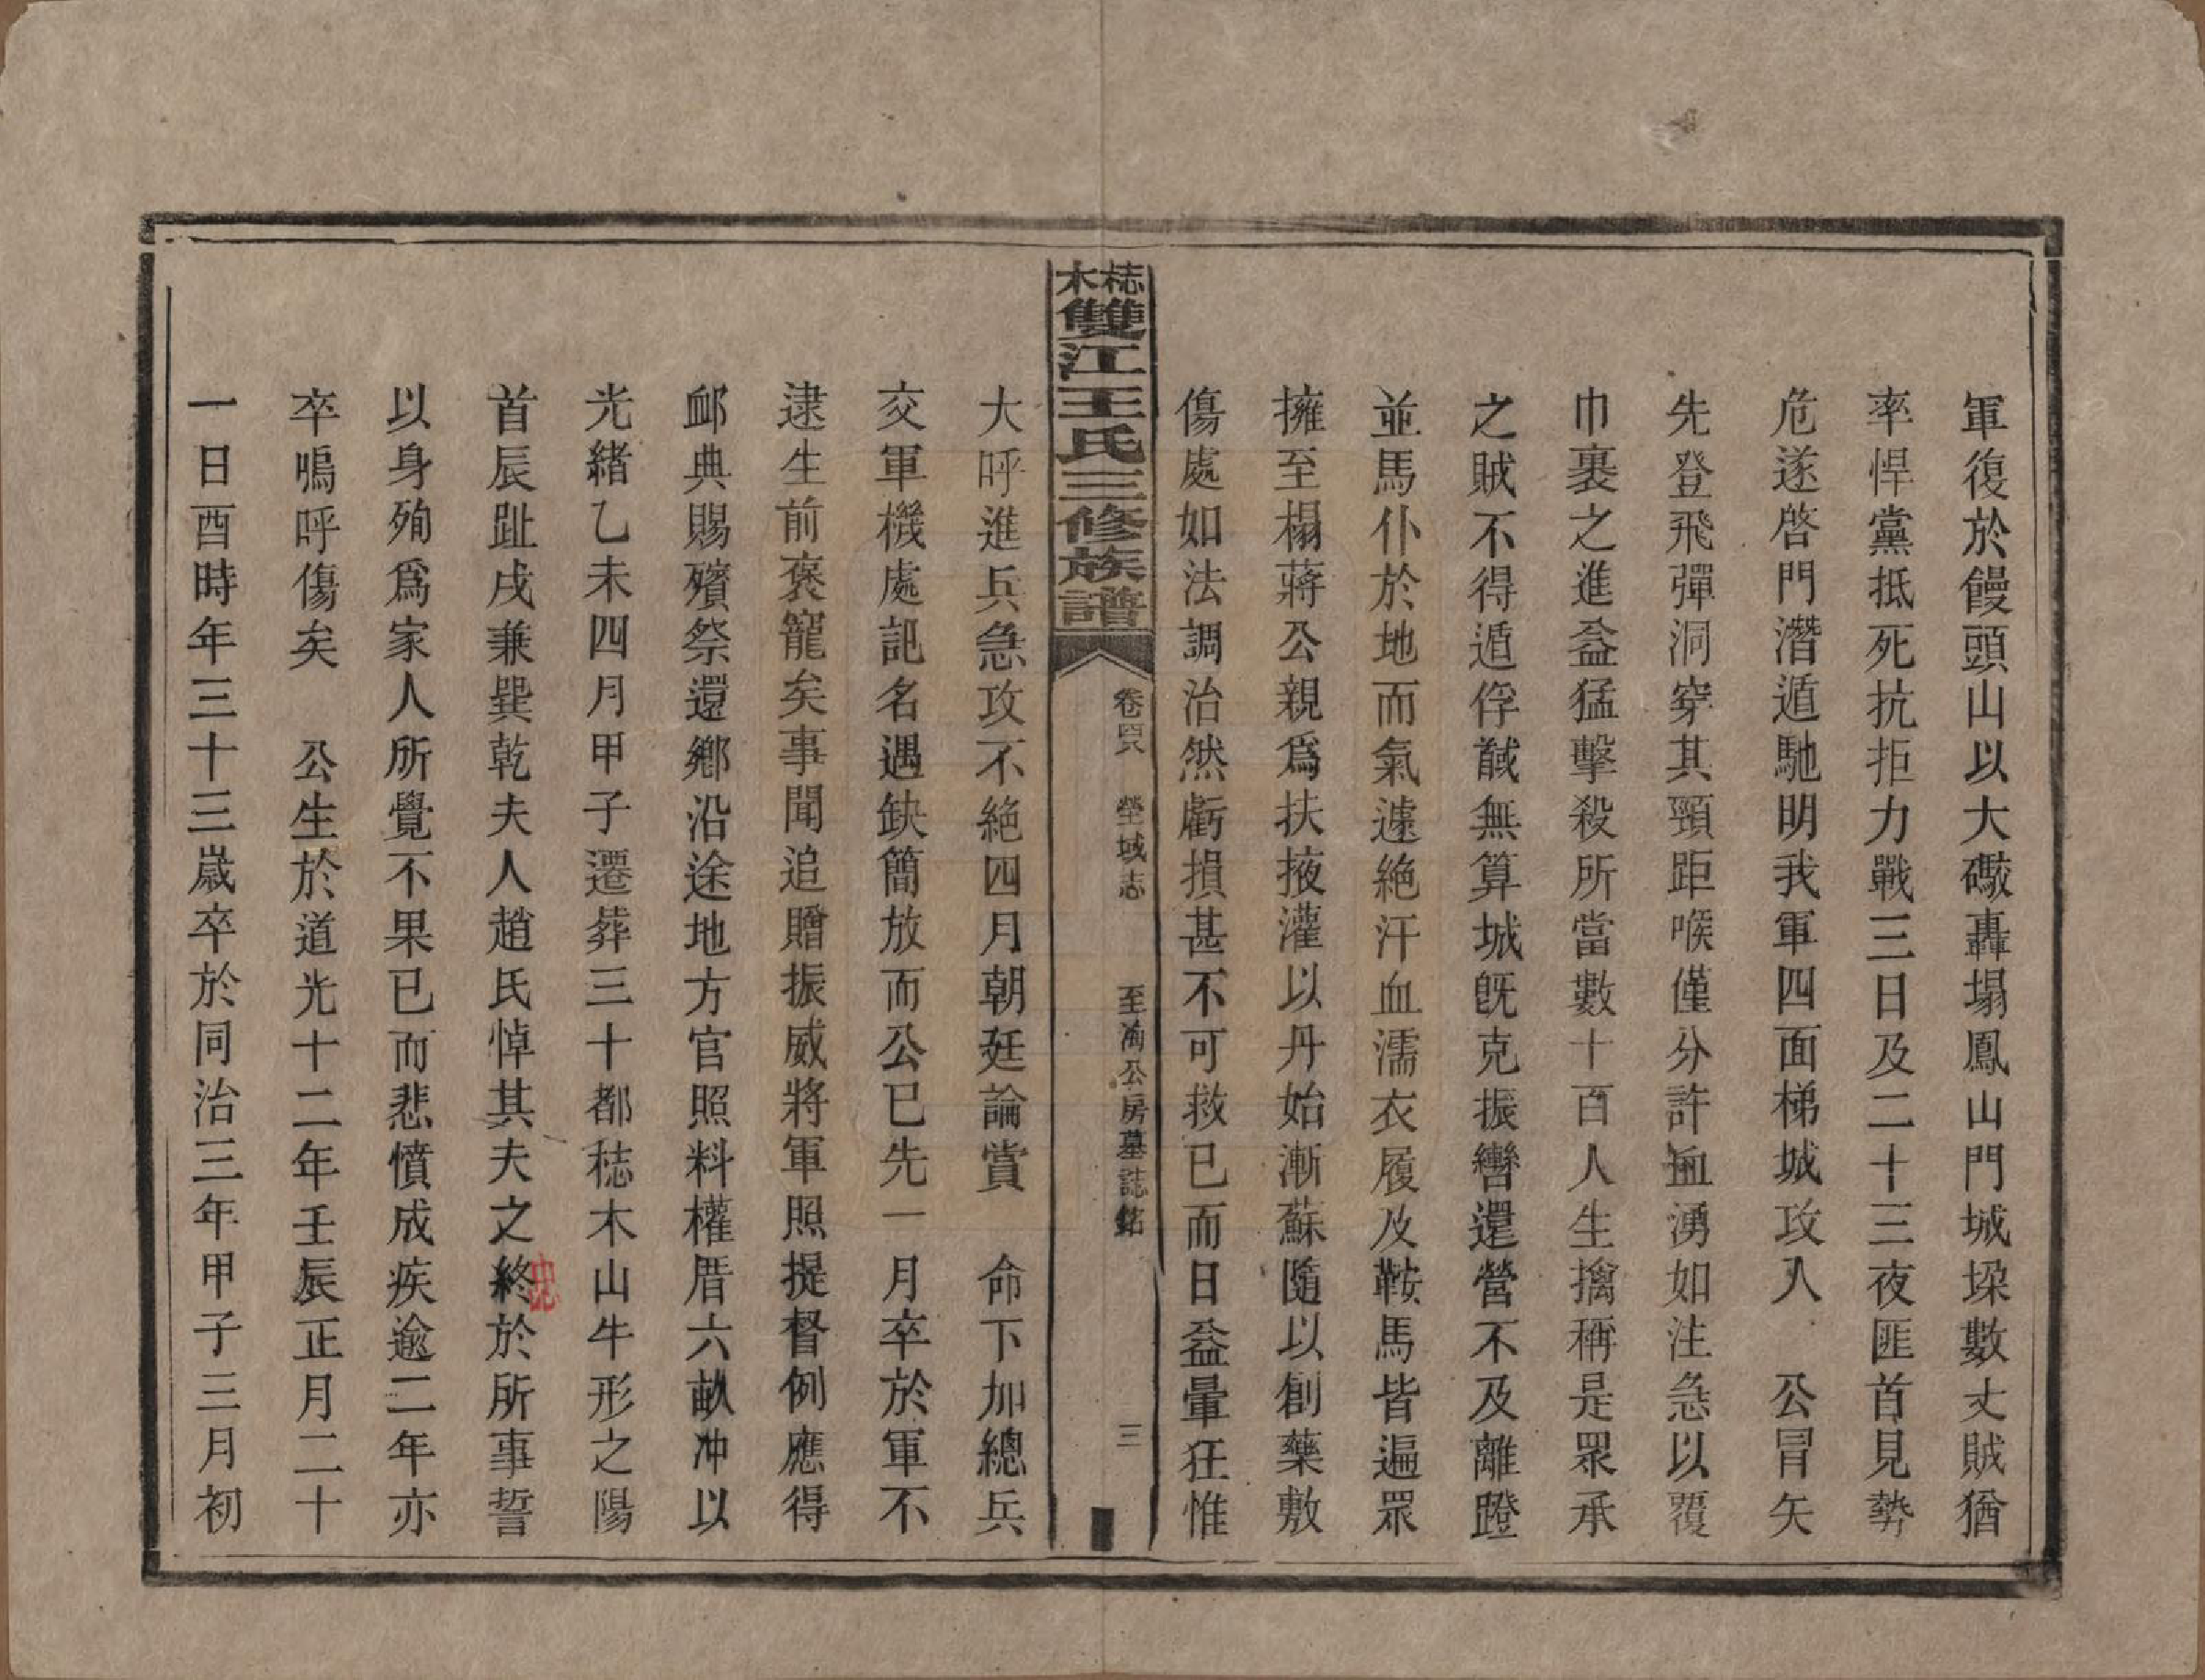 軍復於饅頭山以大礮轟塌鳳山門城垜數丈賊猶
率悍黨抵死抗拒力戰三日及二十三夜匪首見勢
危遂啓門潛遁馳明我軍四面梯城攻入　公冒矢
先登飛彈洞穿其頸距喉僅分許血湧如注急以覆
巾裹之進益猛擊殺所當數十百人生擒稱是眾承
之賊不得遁俘馘無算城旣克振轡還營不及離蹬
並馬仆於地而氣遽絕汗血濡衣履及鞍馬皆遍眾
擁至榻蔣公親爲扶掖灌以丹始漸蘇隨以創藥敷
傷處如法調治然虧損甚不可救已而日益暈狂惟
秳木雙江王氏三修族譜
卷四八　塋域志　至公房墓誌銘　三
大呼進兵急攻不絕四月朝廷論賞　命下加總兵
交軍機處記名遇缺簡放而公已先一月卒於軍不
逮生前褒寵矣事聞追贈振威將軍照提督例應得
卹典賜殯祭還鄉沿途地方官照料權厝六畝冲以
光緒乙未四月甲子遷葬三十都秳木山牛形之陽
首辰趾戌兼巽乾夫人趙氏悼其夫之終於所事誓
以身殉爲家人所覺不果已而悲憤成疾逾二年亦
卒嗚呼傷矣　公生於道光十二年壬辰正月二十
一日酉時年三十三歲卒於同治三年甲子三月初